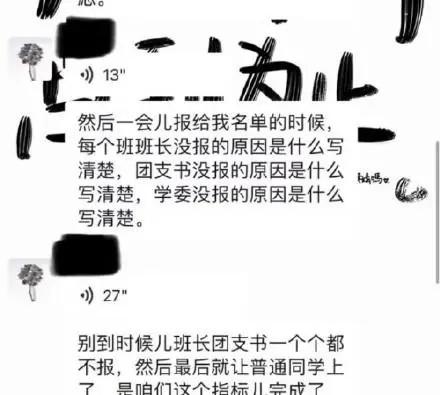 13"
然后一会儿报给我名单的时候，
每个班班长没报的原因是什么写
清楚，团支书没报的原因是什么
写清楚，学委没报的原因是什么
写清楚。
27"
别到时候儿班长团支书一个个都
不报，然后最后就让普通同学上
了，是咱们这个指标儿完成了